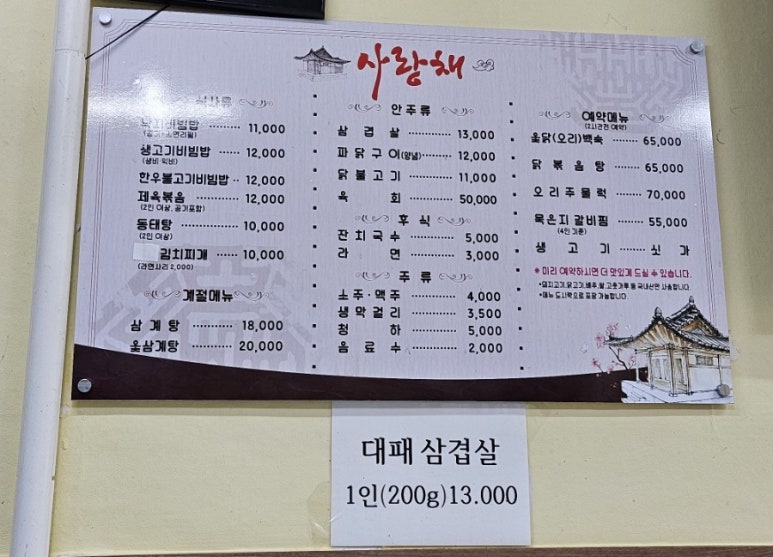 사랑채
식사류
낙지비빔밥 11,000
생고기비빔밥 12,000
(생비·익비)
한우불고기비빔밥 12,000
제육볶음 12,000
(2인 이상, 공기포함)
동태탕 10,000
(2인 이상)
김치찌개 10,000
(라면사리 2,000)
계절메뉴
삼계탕 18,000
옻삼계탕 20,000
안주류
삼겹살 13,000
파닭구이(양념) 12,000
닭불고기 11,000
육회 50,000
후식
잔치국수 5,000
라면 3,000
주류
소주·맥주 4,000
생막걸리 3,500
청하 5,000
음료수 2,000
예약메뉴
(2시간전 예약)
옻닭(오리)백숙 65,000
닭볶음탕 65,000
오리주물럭 70,000
묵은지갈비찜 55,000
(4인 기준)
생고기 싯가
※ 미리 예약하시면 더 맛있게 드실 수 있습니다.
•돼지고기,닭고기,배추,쌀,고춧가루 등 국내산만 사용합니다.
•메뉴 도시락으로 포장 가능합니다.
대패 삼겹살
1인(200g)13.000